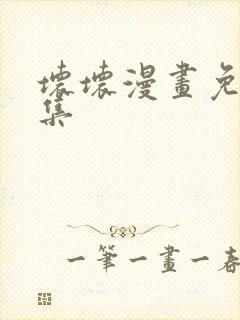 壞壞漫畫免
集
一筆一畫一春